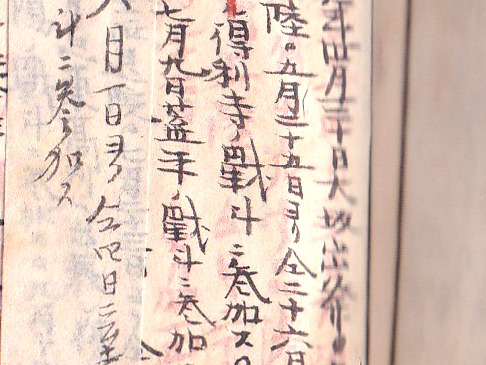 四月三十日大坂出
陸。五月二十五日ヨリ仝二十六日
得利寺ノ戰斗ニ参加ス。
七月九日蓋平ノ戰斗ニ参加
月一日ヨリ仝四日ニ至
斗ニ参加ス